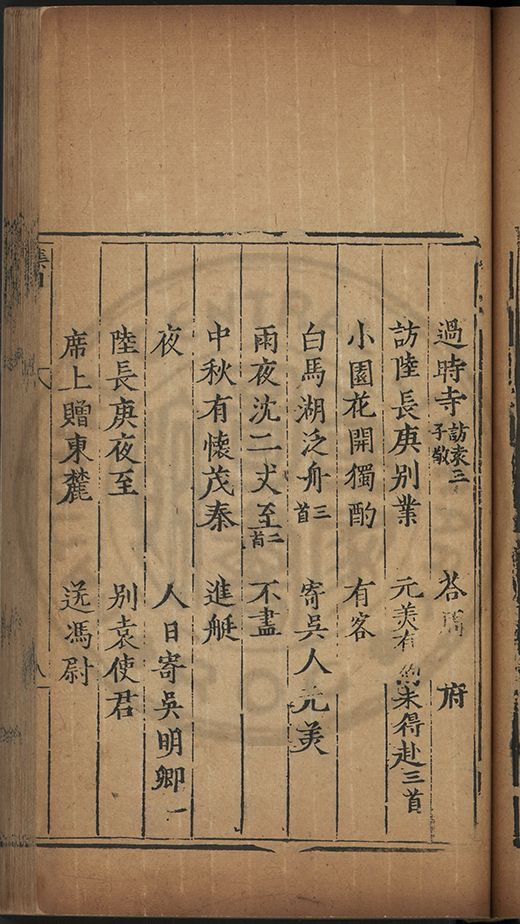 過時寺訪袁三子敬 荅 府
訪陸長庚別業 元美有約未得赴三首
小園花開獨酌 有客
白馬湖泛舟三首 寄吳人元美
雨夜沈二丈至二首 不盡
中秋有懷茂秦 進艇
夜 人日寄吳明卿一
陸長庚夜至 別袁使君
席上贈東麓 送馮尉